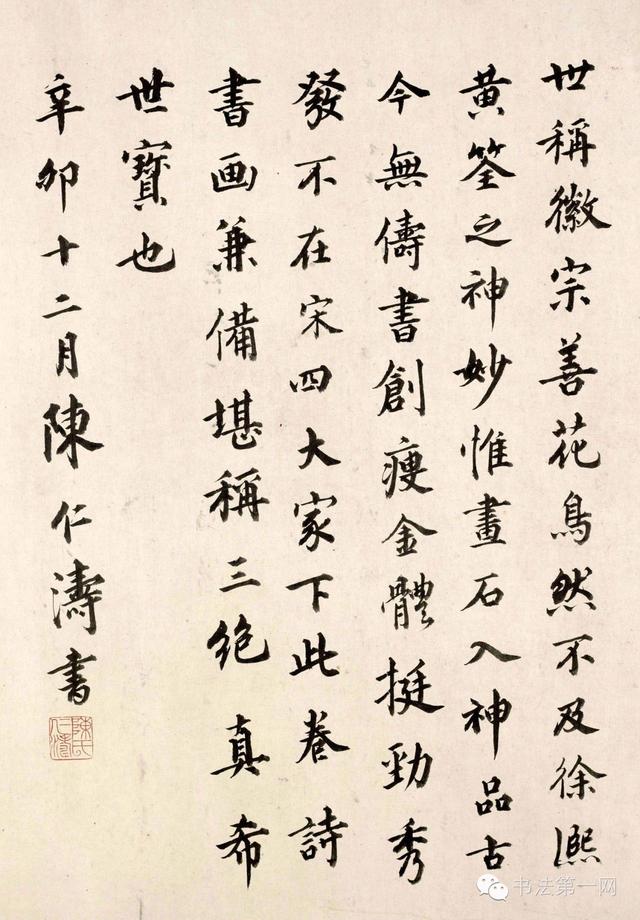 世稱徽宗善花鳥然不及徐熙
黄筌之神妙惟畫石入神品古
今無儔書創瘦金體挺勁秀
發不在宋四大家下此卷詩
書画兼備堪稱三绝真希
世寶也
辛卯十二月陳仁濤書
陳氏
仁濤
书法第一网